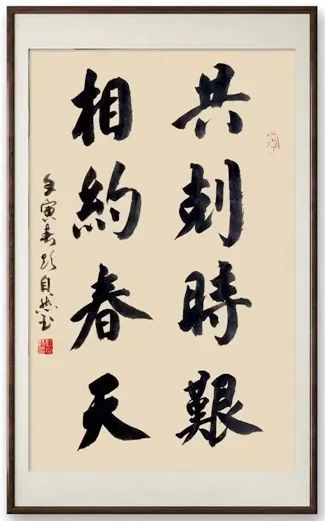 共剋時艱
相約春天
壬寅春自然书